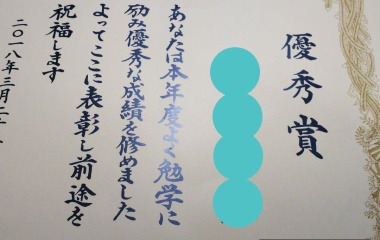 優秀賞
あなたは本年度よく勉学に
励み優秀な成績を修めました
よってここに表彰し前途を
祝福します
二〇一八年三月二十